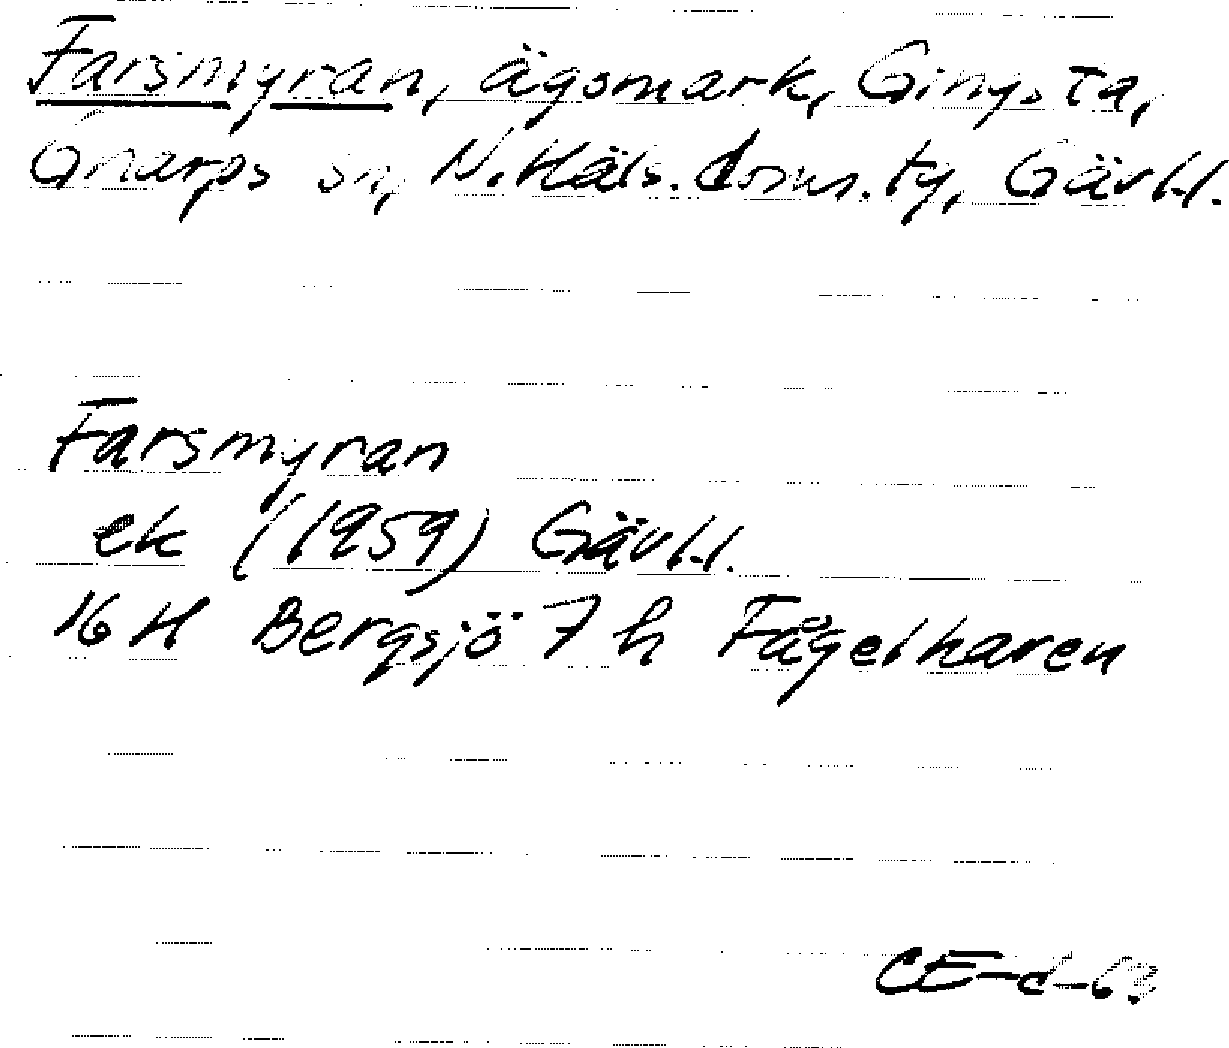 Farsmyran, ägomark, Gingsta,
Gnarps sn, N. Häls. doms. ty, Gävl.l.
Farsmyran
ek (1959) Gävl.l.
16 H Bergsjö 7 h Fågelharen
CE-d-63